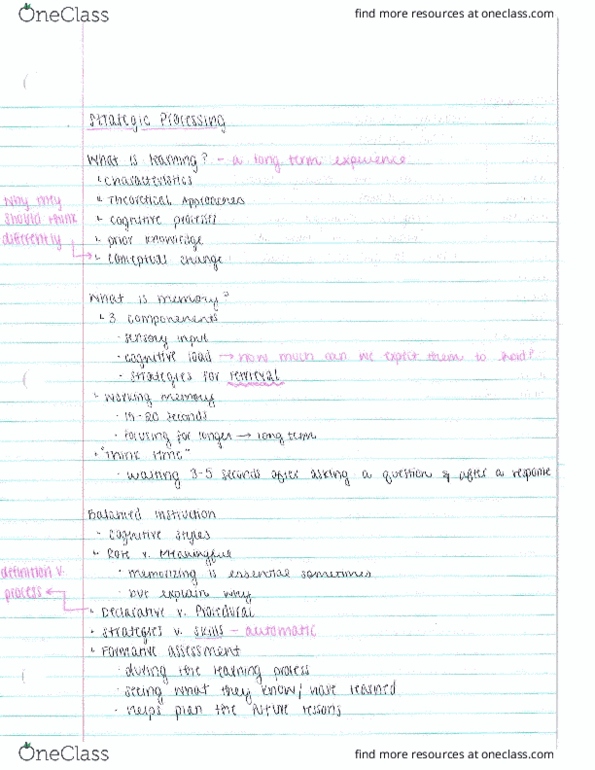 OneClass
find more resources at oneclass.com
Strategic Processing
What is learning? - a long term experience
characteristics
Theoretical Approaches
cognitive processes
prior knowledge
conceptual change
Why they
should think
differently
What is memory?
3 components
sensory input
cognitive load → how much can we expect them to hold?
strategies for retrieval
working memory
15-20 seconds
focusing for longer → long term
"Think time"
waiting 3-5 seconds after asking a question & after a response
Balanced Instruction
cognitive styles
Rote v. Meaningful
memorizing is essential sometimes
but explain why
Declarative v. Procedural
definition v.
process
strategies v. skills - automatic
Formative assessment
during the learning process
seeing what they know/have learned
helps plan the future lessons
OneClass
find more resources at oneclass.com